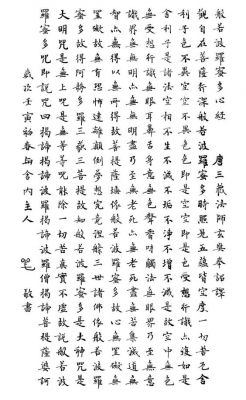 般若波羅蜜多心經 唐三藏法師玄奘奉詔譯
觀自在菩薩行深般若波羅蜜多時照見五蘊皆空度一切苦厄舍
利子色不異空空不異色色即是空空即是色受想行識亦復如是
舍利子是諸法空相不生不滅不垢不淨不增不減是故空中無色
無受想行識無眼耳鼻舌身意無色聲香味觸法無眼界乃至無意
識界無無明亦無無明盡乃至無老死亦無老死盡無苦集滅道無
智亦無得以無所得故菩提薩埵依般若波羅蜜多故心無罣礙無
罣礙故無有恐怖遠離顛倒夢想究竟涅槃三世諸佛依般若波羅
蜜多故得阿耨多羅三藐三菩提故知般若波羅蜜多是大神咒是
大明咒是無上咒是無等等咒能除一切苦真實不虛故說般若波
羅蜜多咒即說咒曰揭諦揭諦波羅揭諦波羅僧揭諦菩提薩婆訶
歲次壬寅初春 舍內主人 敬書